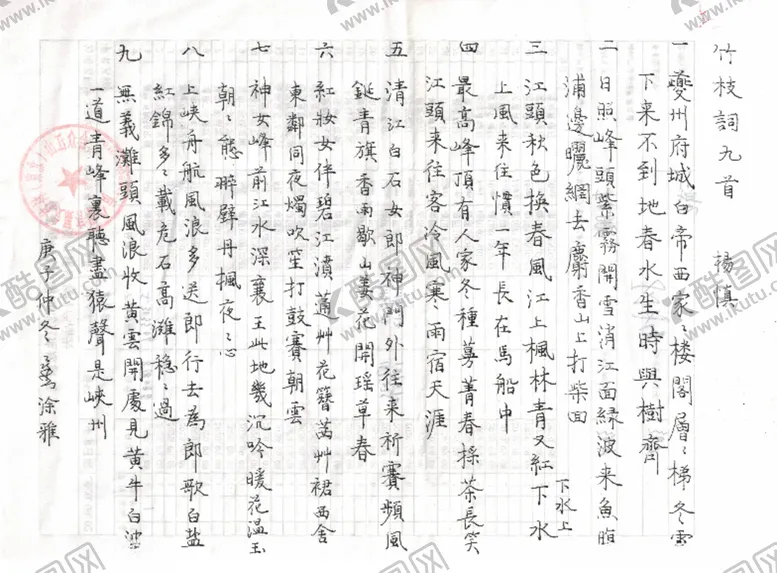 竹枝詞九首 楊慎
一 夔州府城白帝西家〻樓閣層〻梯冬雪
下來不到地春水生時與樹齊
二 日照峰頭紫霧開雪消江面綠波來魚腹
浦邊曬網去麝香山上打柴回
三 江頭秋色換春風江上楓林青又紅下水
下水上
上風來住慣一年長在馬船中
四 最高峰頂有人家冬種蔓菁春採茶長笑
江頭來往客冷風寒雨宿天涯
五 清江白石女郎神門外往來祈賽頻風
鋋青旗香雨歇山姜花開瑶草春
六 紅妝女伴碧江濆蓪艸花簪茜艸裙西舍
東鄰同夜燭吹笙打鼓賽朝雲
七 神女峰前江水深襄王此地幾沉吟暖花溫玉
朝〻態翠壁丹楓夜〻心
八 上峽舟航風浪多送郎行去為郎歌白盐
紅錦多〻載危石高灘穩〻過
九 無義灘頭風浪收黃雲開處見黃牛白波
一道青峰裏聽盡猿聲是峽州
庚子仲冬 塗雅
酷图网
ikutu.com